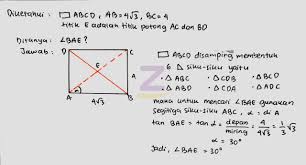 Diketahui : □ ABCD , AB = 4√3 , BC = 4
titik E adalah titik potong AC dan BD
Ditanya : ∠BAE ?
Jawab :
D C
E
A α B
4√3
4
□ ABCD disamping membentuk
6 Δ siku-siku yaitu
· Δ ABC · Δ CDB · Δ ABD
· Δ ABC · Δ CDA · Δ ADC
maka untuk mencari ∠BAE gunakan
segitiga siku-siku ABC , α = di A
tan BAE = tan α = depan/miring = 4/4√3 = 1/3 √3
α = 30°
Jadi, ∠BAE = 30°